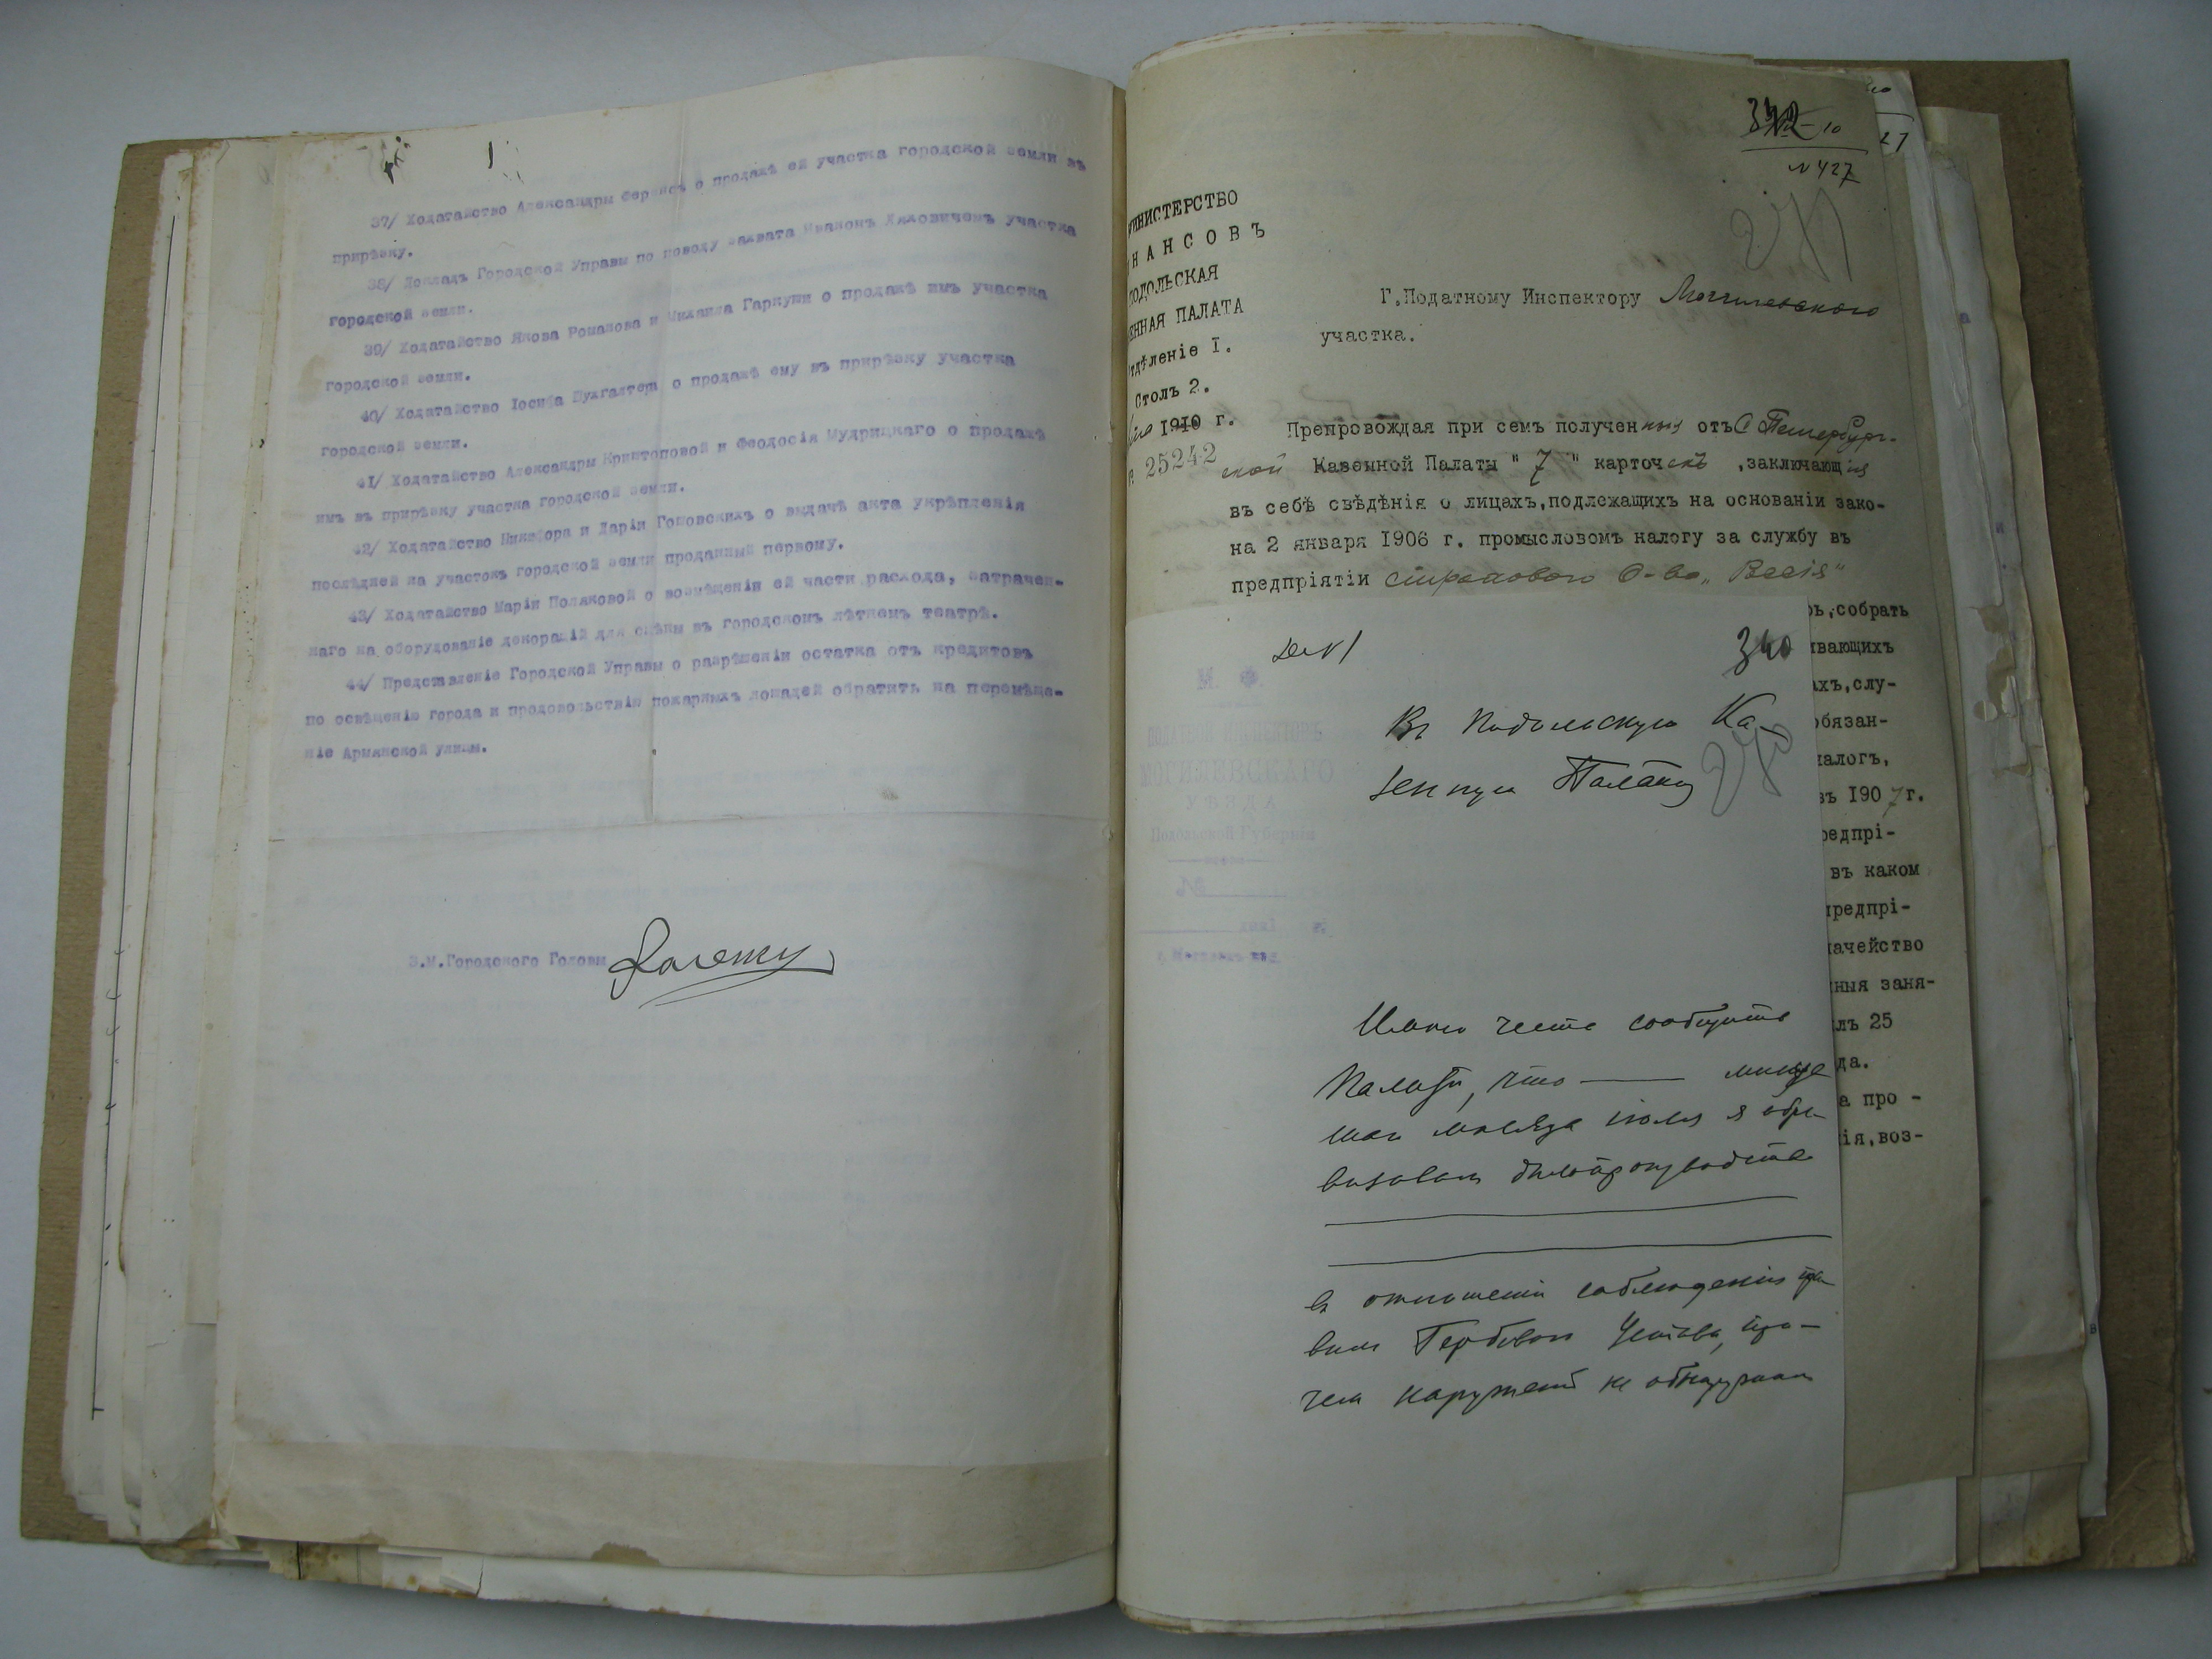 37/ Ходатайство Александры о продажѣ ей участка городской земли въ
прирѣзку.
38/ Докладъ Городской Управы по поводу захвата Иваномъ участка
городской земли.
39/ Ходатайство Якова Романова и Михаила Гаркуши о продажѣ имъ участка
городской земли.
40/ Ходатайство Іосифа Бухгалтера о продажѣ ему въ прирѣзку участка
городской земли.
41/ Ходатайство Александры и Феодосія Мудрицкаго о продажѣ
имъ въ прирѣзку участка городской земли.
42/ Ходатайство Никифора и Даріи о выдачѣ акта укрѣпленія
послѣдней на участокъ городской земли проданный первому.
43/ Ходатайство Маріи Поляковой о возмѣщеніи ей части расхода, затрачен-
наго на оборудованіе декорацій для сцены въ городскомъ лѣтнемъ театрѣ.
44/ Представленіе Городской Управы о разрѣшеніи остатка отъ кредитовъ
по освѣщенію города и продовольствію пожарныхъ лошадей обратить на перемѣще-
ніе Армянской улицы.
З.М.Городского Головы
№ 427
МИНИСТЕРСТВО
НАНСОВЪ
ПОДОЛЬСКАЯ
ЕННАЯ ПАЛАТА
тдѣленіе I.
Столъ 2.
1910 г.
25242
Г.Податному Инспектору Могилевского
участка.
Препровождая при семъ полученныя отъ С Петербург-
ской Казенной Палаты " 7 " карточекъ ,заключающія
въ себѣ свѣдѣнія о лицахъ,подлежащихъ на основаніи зако-
на 2 января 1906 г. промысловомъ налогу за службу въ
предпріятіи страхового О-ва „Россія"
рь,собрать
ивающихъ
ахъ,слу-
обязан-
налогъ,
въ 1907г.
редпрі-
въ каком
предпрі-
начейство
ныя заня-
лъ 25
да.
а про -
ія,воз-
340
Въ Подольскую Ка-
зенную Палату
М. Ф.
ПОДАТНОЙ ИНСПЕКТОРЪ
МОГИЛЕВСКАГО
УѢЗДА
Подольской Губерніи
№
Имѣю честь сообщить
Палатѣ, что —— минув
шаго мѣсяца іюля я обре-
визовалъ дѣлопроизводство
въ отношеніи соблюденія пра
вилъ Гербоваго Устава, при-
чемъ нарушеній не обнаружилъ